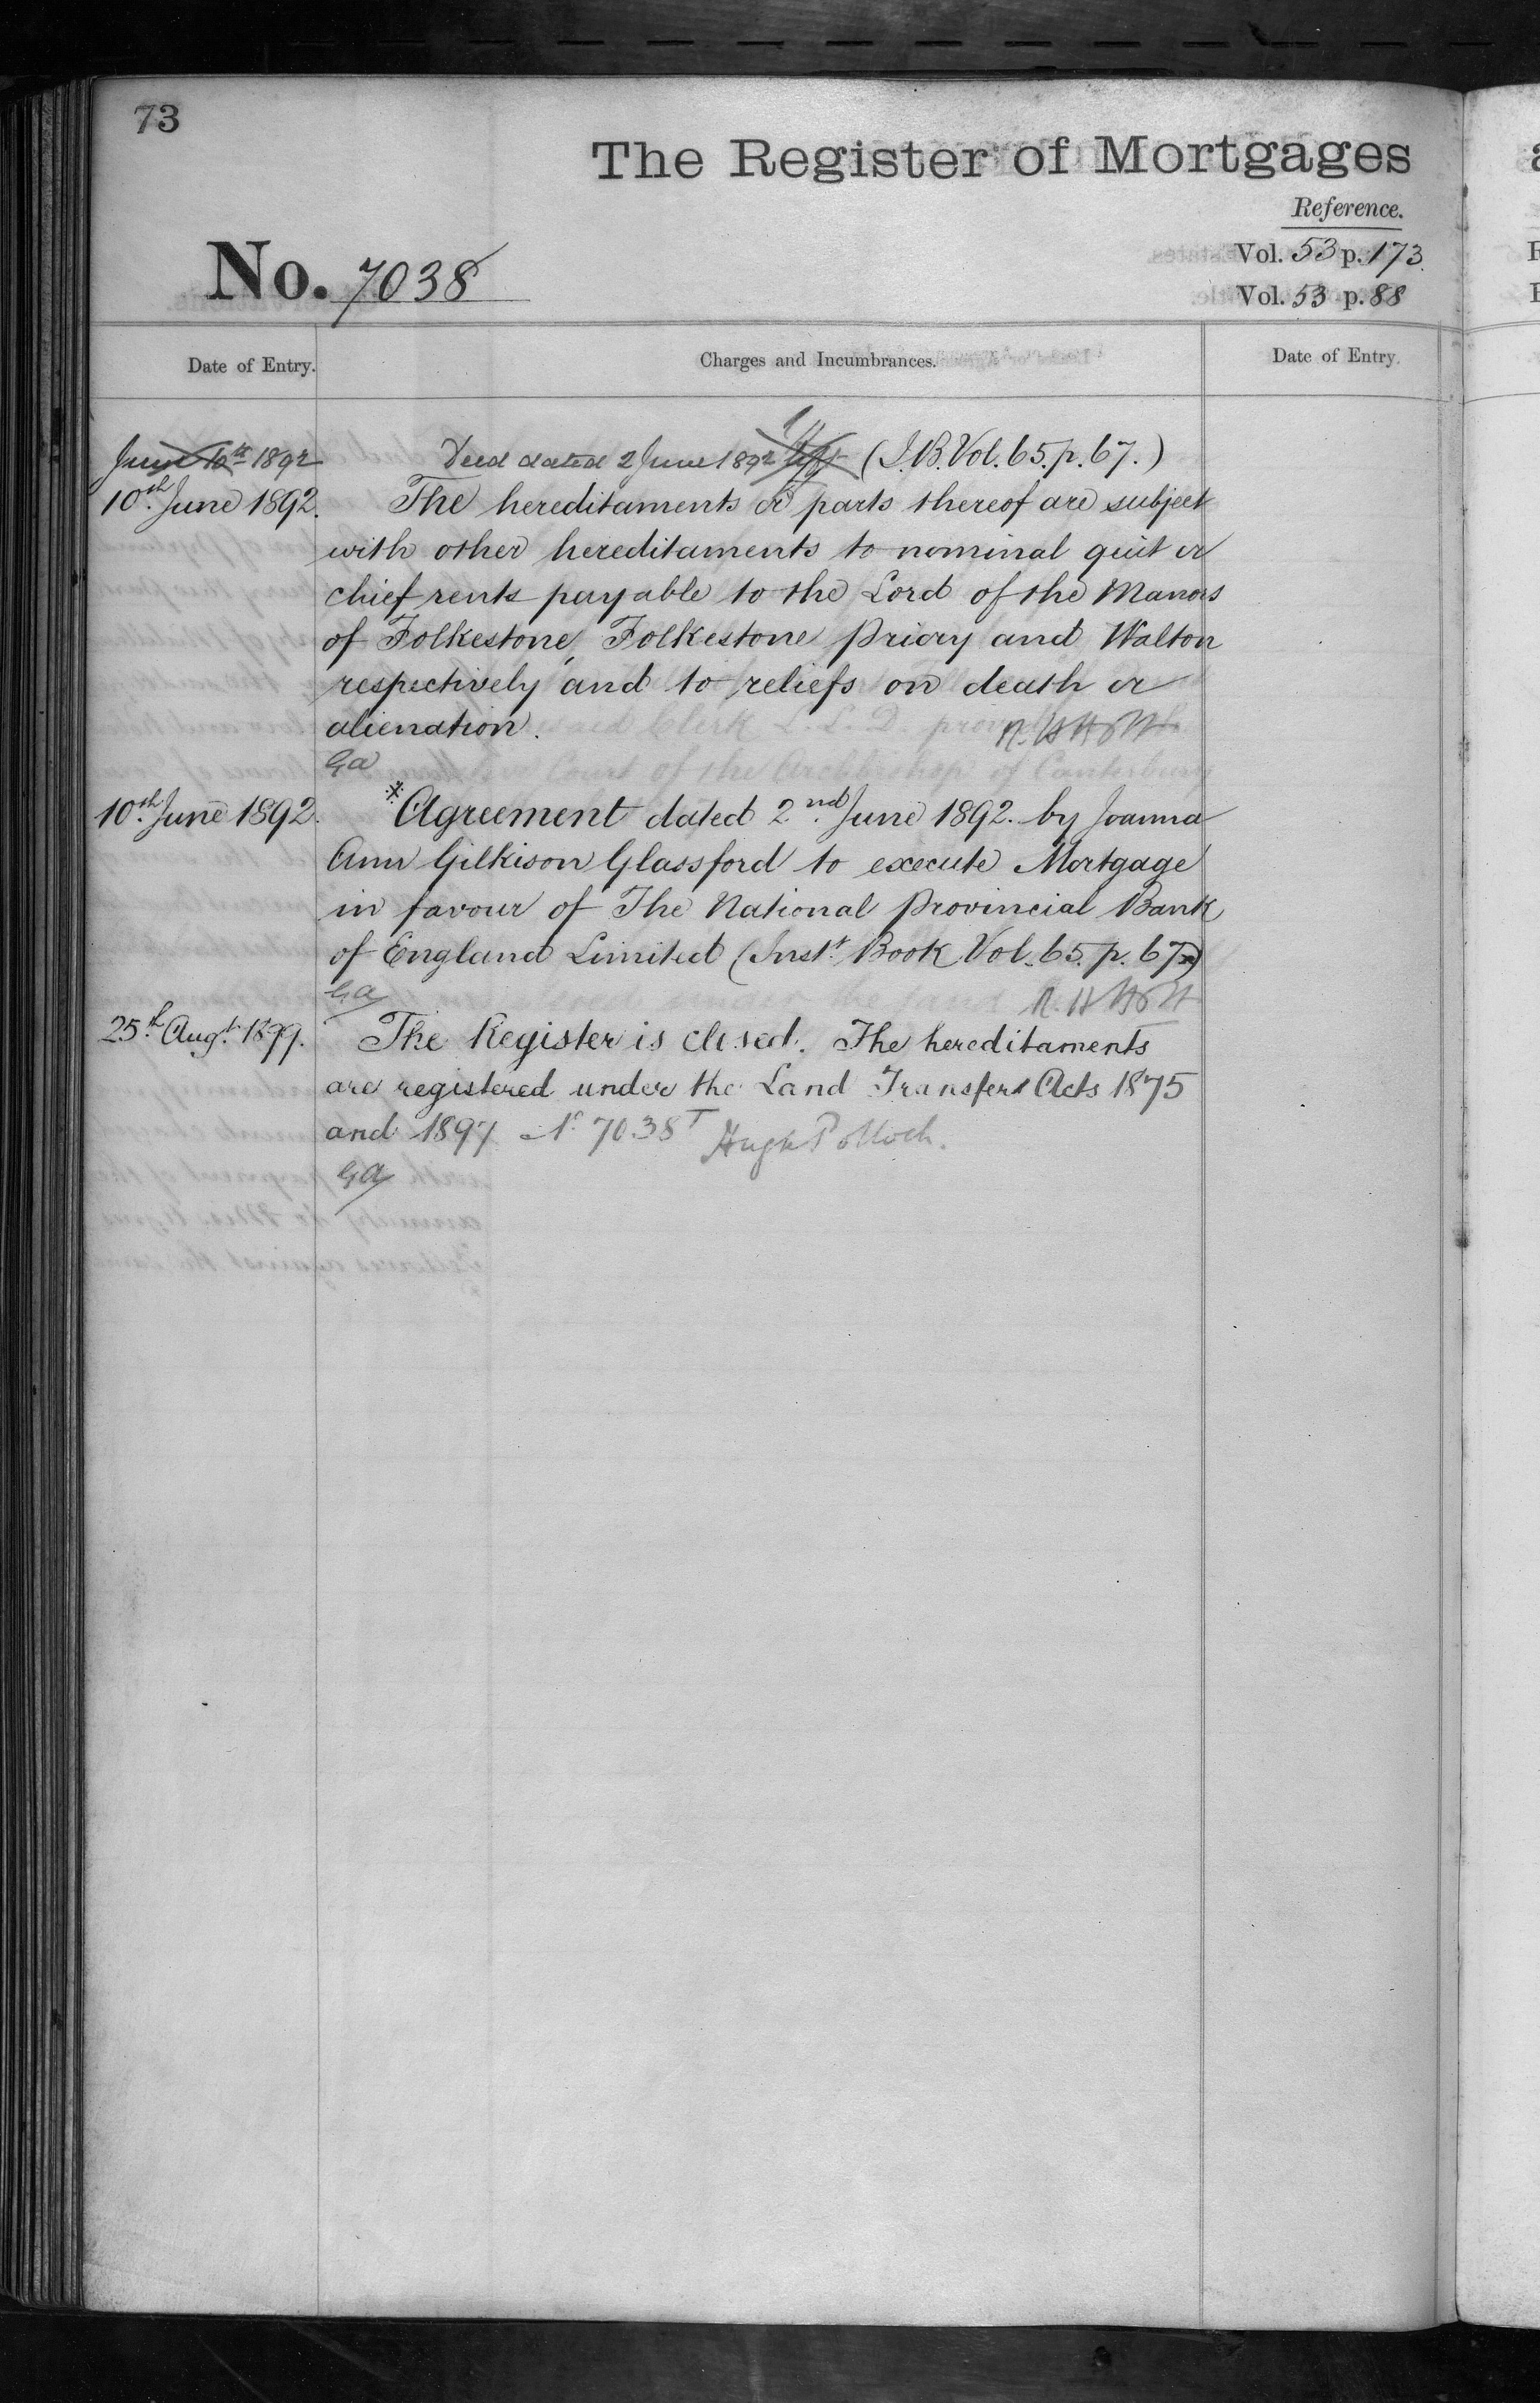 73
The Register of Mortgages
Reference.
No. 7038
Vol. 53 p. 173.
Vol. 53 p. 88
Date of Entry.
Charges and Incumbrances.
Date of Entry.
June 10th 1892
Deed dated 2 June 1892 (I.B. Vol. 65. p. 67.)
10th June 1892.
The hereditaments or parts thereof are subject
with other hereditaments to nominal quit or
chief rents payable to the Lord of the Manors
of Folkestone, Folkestone Priory and Walton
respectively and to reliefs on death or
alienation.
Ga
10th June 1892.
*Agreement dated 2nd June 1892. by Joanna
Ann Gilkison Glassford to execute Mortgage
in favour of The National Provincial Bank
of England Limited (Inst. Book Vol. 65. p. 67)
Ga
25th Augt. 1899.
The Register is closed. The hereditaments
are registered under the Land Transfer Acts 1875
and 1897 No 7038T Hugh Pollock.
Ga